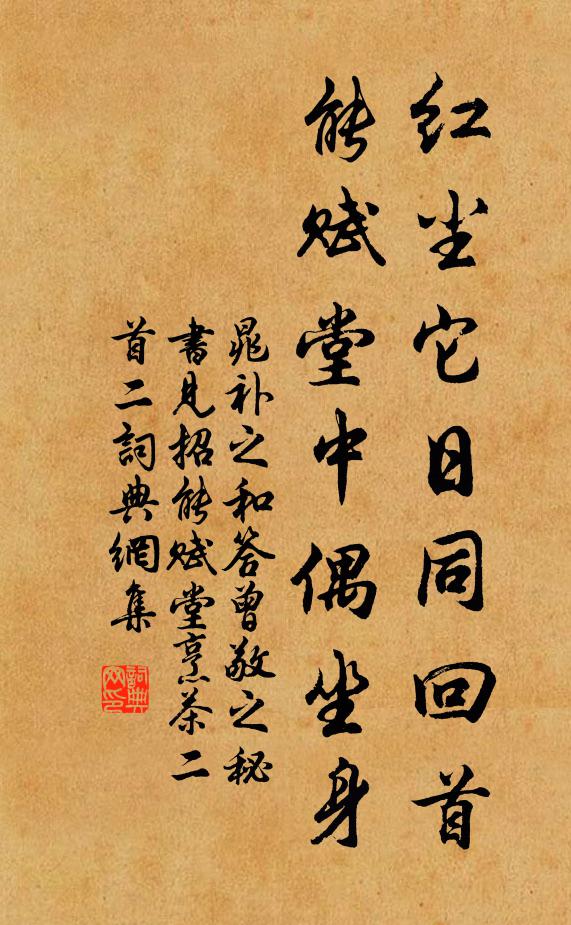 红尘它日同回首
能赋堂中偶坐身
晁补之和答曾敬之秘
書見招能赋堂烹茶二
首二詞典網集
詞典网印